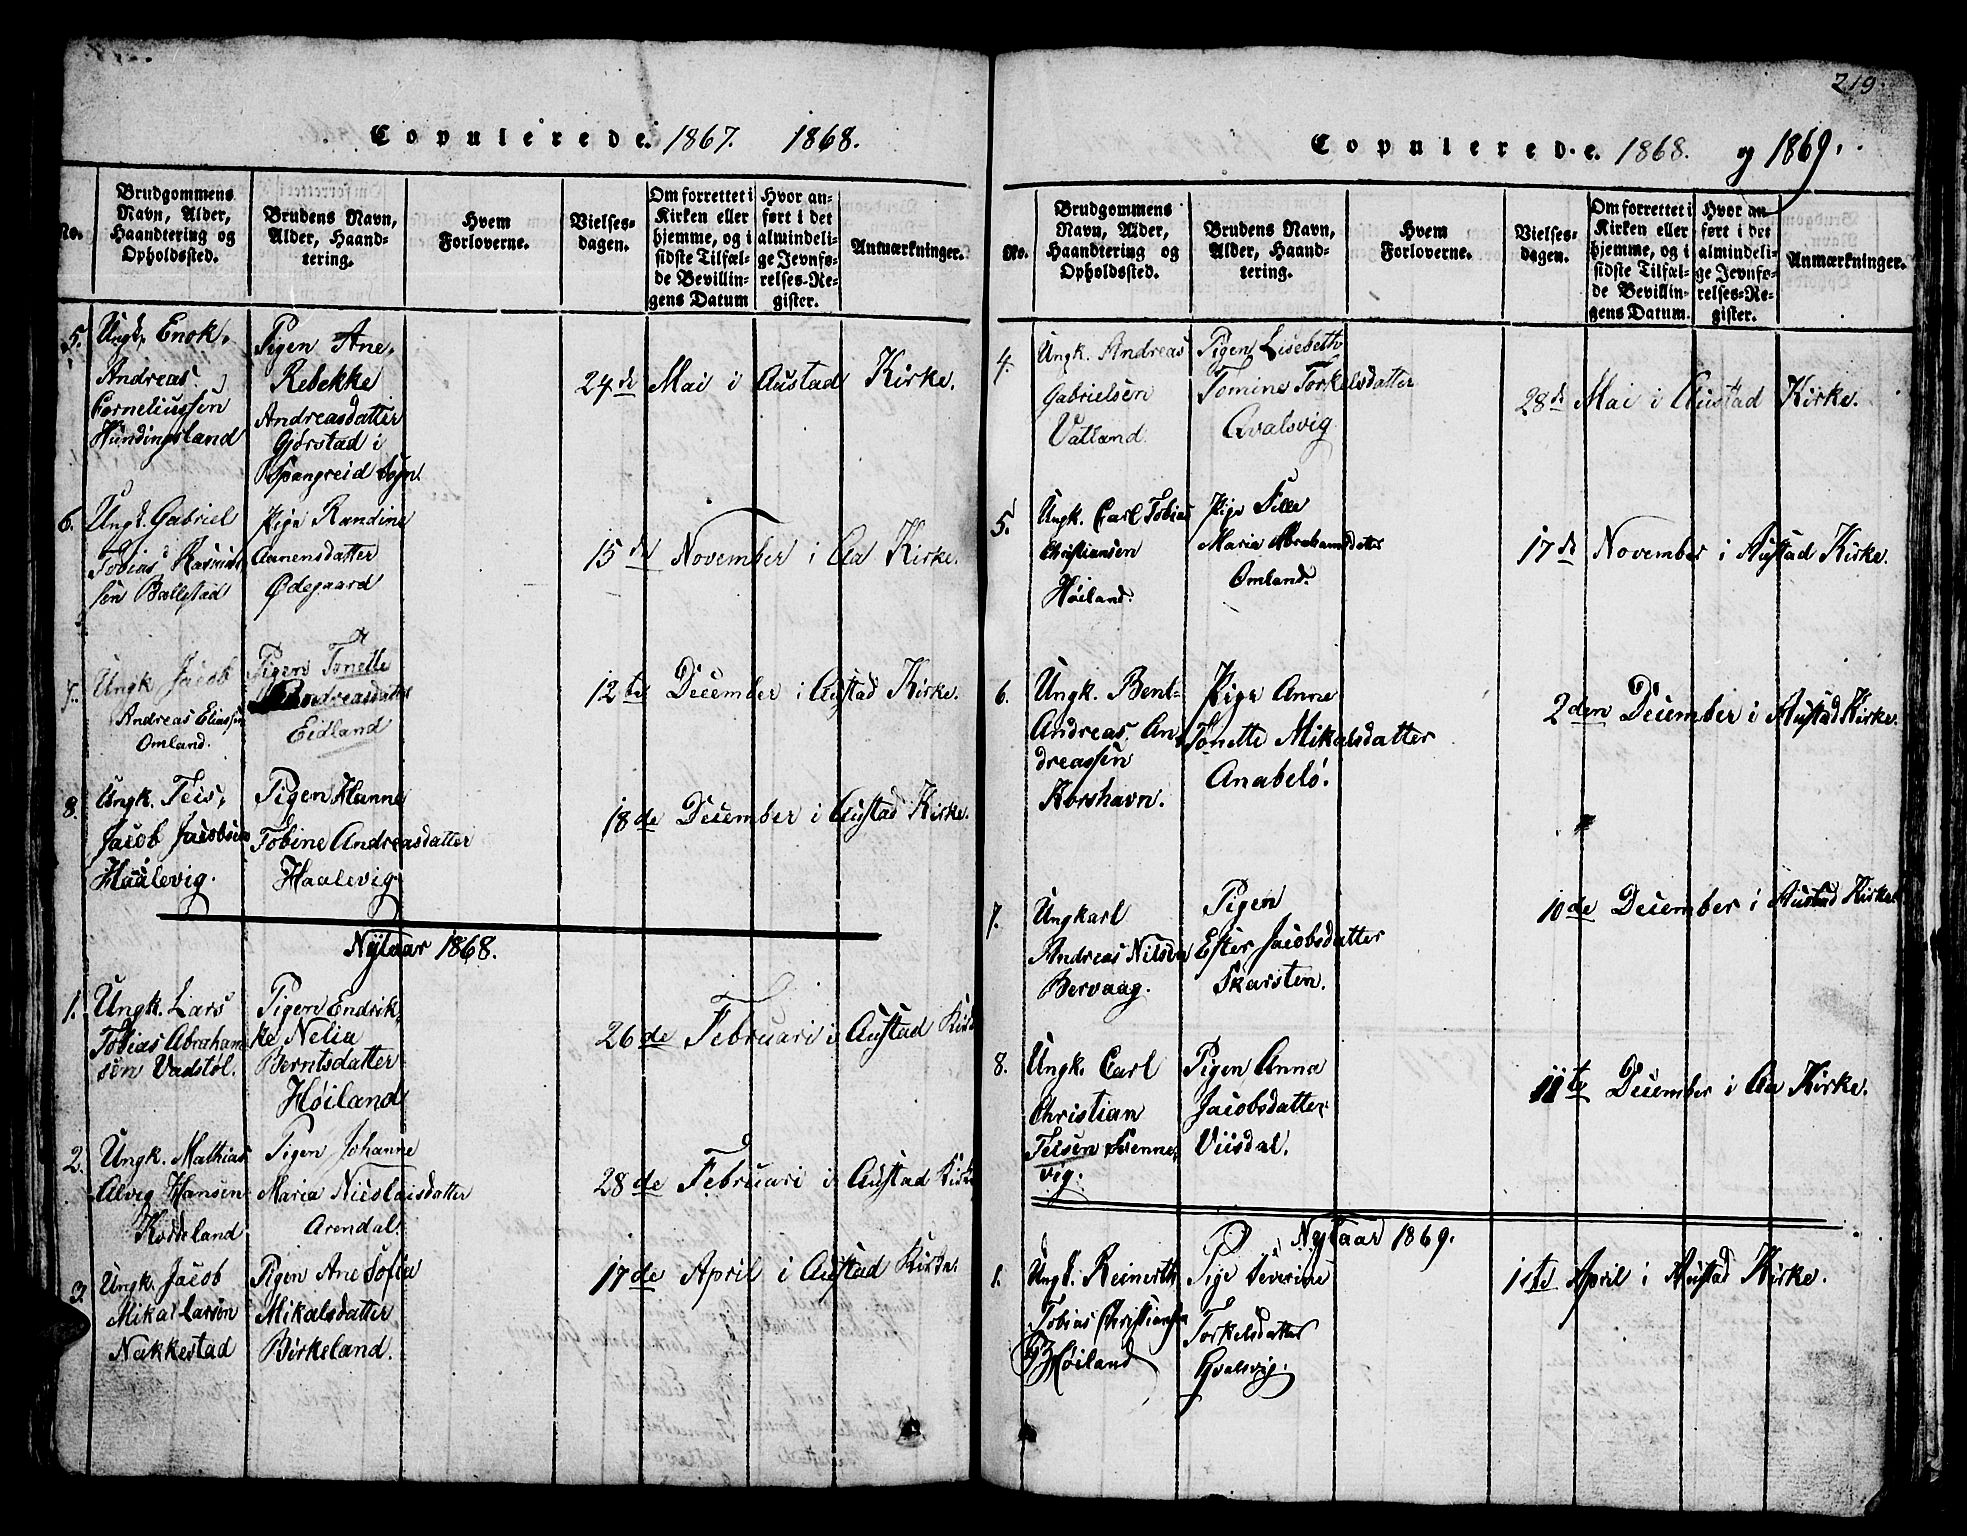 Copulerede. 1867. 1868.
No.
Brudgommens
Navn, Alder,
Haandtering og
Opholdssted.
Brudens Navn,
Alder, Haand-
tering.
Hvem
Forloverne.
Vielses-
dagen.
Om forrettet i
Kirken eller
hjemme, og i
sidste Tilfæl-
de Bevillin-
gens Datum
Hvor an-
ført i det
almindeli-
ge Jevnfø-
relses-Re-
gister.
Anmærkninger.
5.
Ungk. Enok
Andreas
Corneliussen
Hundingsland
Pigen Ane
Rebekke
Andreasdatter
Gjørstad i
Spangreid Sogn.
24de Mai i Austad Kirke.
6.
Ungk. Gabriel
Tobias Rasmus
sen Ballestad
Pige Randine
Aanensdatter
Ødegaard
15de November i Aa Kirke.
7.
Ungk Jacob
Andreas Eliassen
Omland.
Pigen Tonette
Andreasdatter
Eidland
12te December i Austad Kirke.
8.
Ungk. Teis
Jacob Jacobsen
Haalevig.
Pigen Hanne
Tobine Andreasdatter
Haalevig
18de December i Austad Kirke.
Nytaar 1868.
1.
Ungk. Lars
Tobias Abraham
sen Vadstøl.
Pigen Endrik
ke Nelia
Berntsdatter
Høiland
26de Februari i Austad Kirke
2.
Ungk. Mathias
Alvig Hansen
Koddeland
Pigen Johanne
Maria Nicolaisdatter
Arendal.
28de Februari i Austad Kirke
3.
Ungk. Jacob
Mikal Larsen
Nakkestad
Pigen Ane Sofia
Mikalsdatter
Birkeland.
17de April i Austad Kirke.
219.
Copulerede. 1868. og 1869.
No.
Brudgommens
Navn, Alder,
Haandtering og
Opholdssted.
Brudens Navn,
Alder, Haand-
tering.
Hvem
Forloverne.
Vielses-
dagen.
Om forrettet i
Kirken eller
hjemme, og i
sidste Tilfæl-
de Bevillin-
gens Datum.
Hvor an-
ført i det
almindeli-
ge Jevnfø-
relses-Re-
gister.
Anmærkninger.
4.
Ungk. Andreas
Gabrielsen
Vatland.
Pigen Lisebeth
Tomine Torkelsdatter
Qvalsvig
28de Mai i Austad Kirke.
5.
Ungk. Carl Tobias
Christiansen
Høiland.
Pige Sille
Maria Abrahamsdatter
Omland.
17de November i Austad Kirke.
6.
Ungk. Bent
Andreas An
dreassen
Korshavn.
Pige Anne
Tonette Mikalsdatter
Anabelö.
2den December i Austad Kirke.
7.
Ungkarl
Andreas Nilsen
Bervaag.
Pigen
Ester Jacobsdatter
Skarsten.
10de December i Austad Kirke
8.
Ungk. Carl
Christian
Teisen Svenne
vig.
Pigen Anna
Jacobsdatter
Viisdal.
11te December i Aa Kirke.
Nytaar 1869.
1.
Ungk. Reinerth
Tobias Christiansen
Høiland
Pige Severine
Torkelsdatter
Qvalsvig.
1ste April i Austad Kirke.